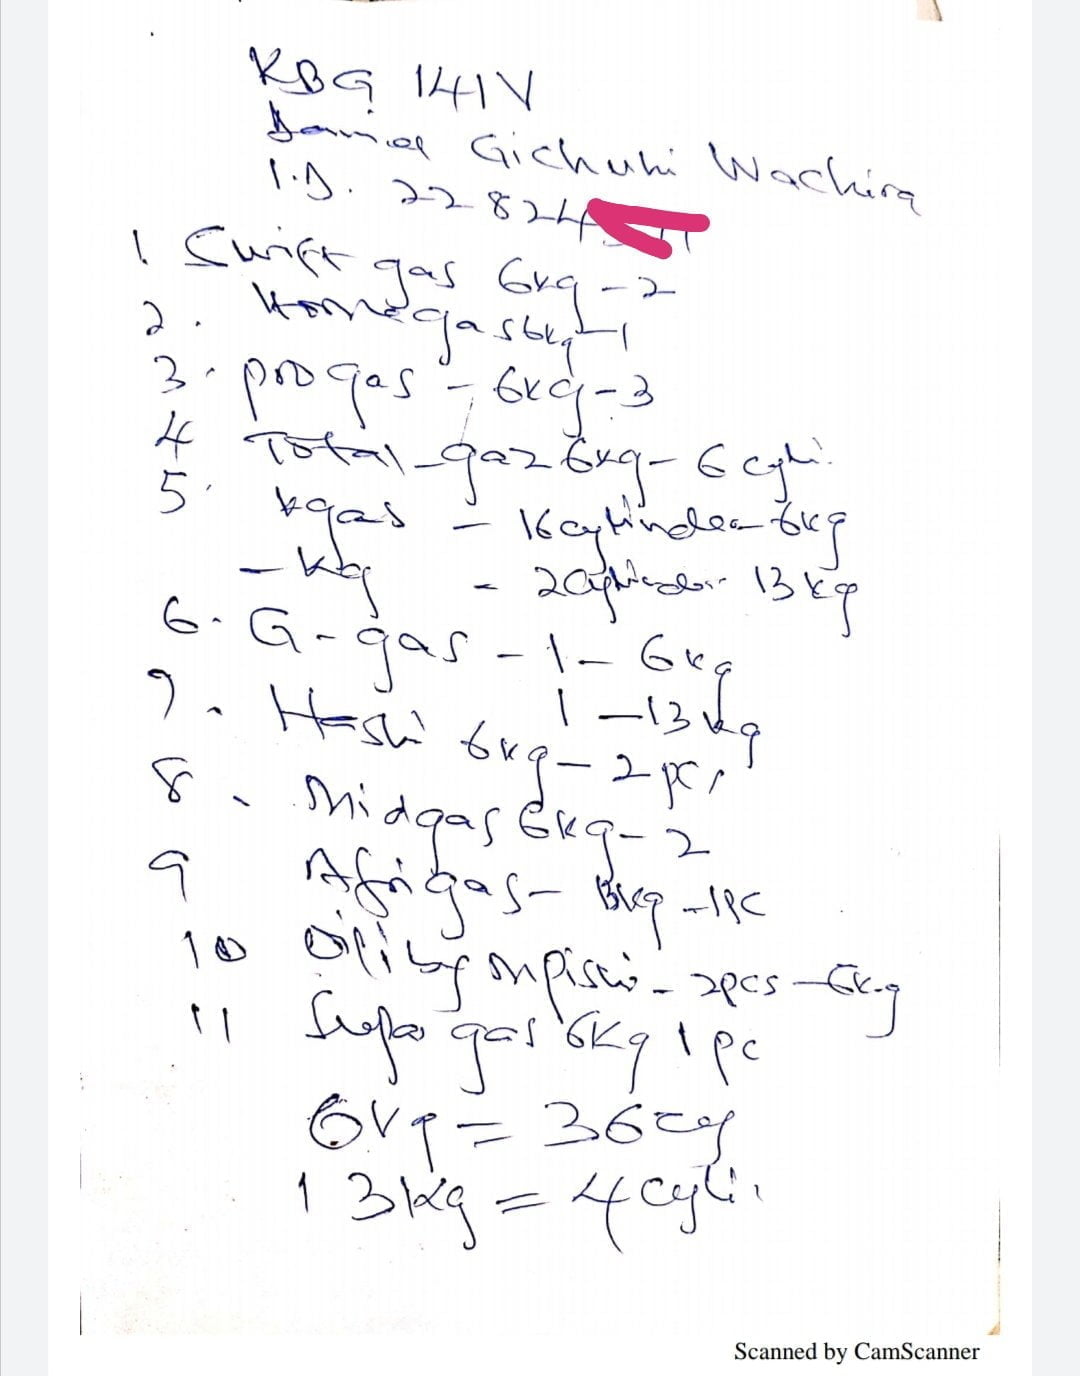 KBG 141V
Daniel Gichuhi Wachira
I.D. 22824
1 Swift gas 6kg - 2
2. Homegas 6kg - 1
3. pro gas - 6kg - 3
4 Total gaz 6kg - 6 cyli.
5. kgas - 16 cylinder 6kg
- kg - 2 cylinder 13 kg
6. G-gas - 1 - 6kg
1 - 13 kg
7. Hashi 6kg - 2 pcs
8. Midgas 6kg - 2
9 Afrigas - 13kg - 1PC
10 Oilibya mpishi - 2pcs - 6kg
11 Supa gas 6Kg 1 pc
6kg = 36 cy
13kg = 4 cyli.
Scanned by CamScanner